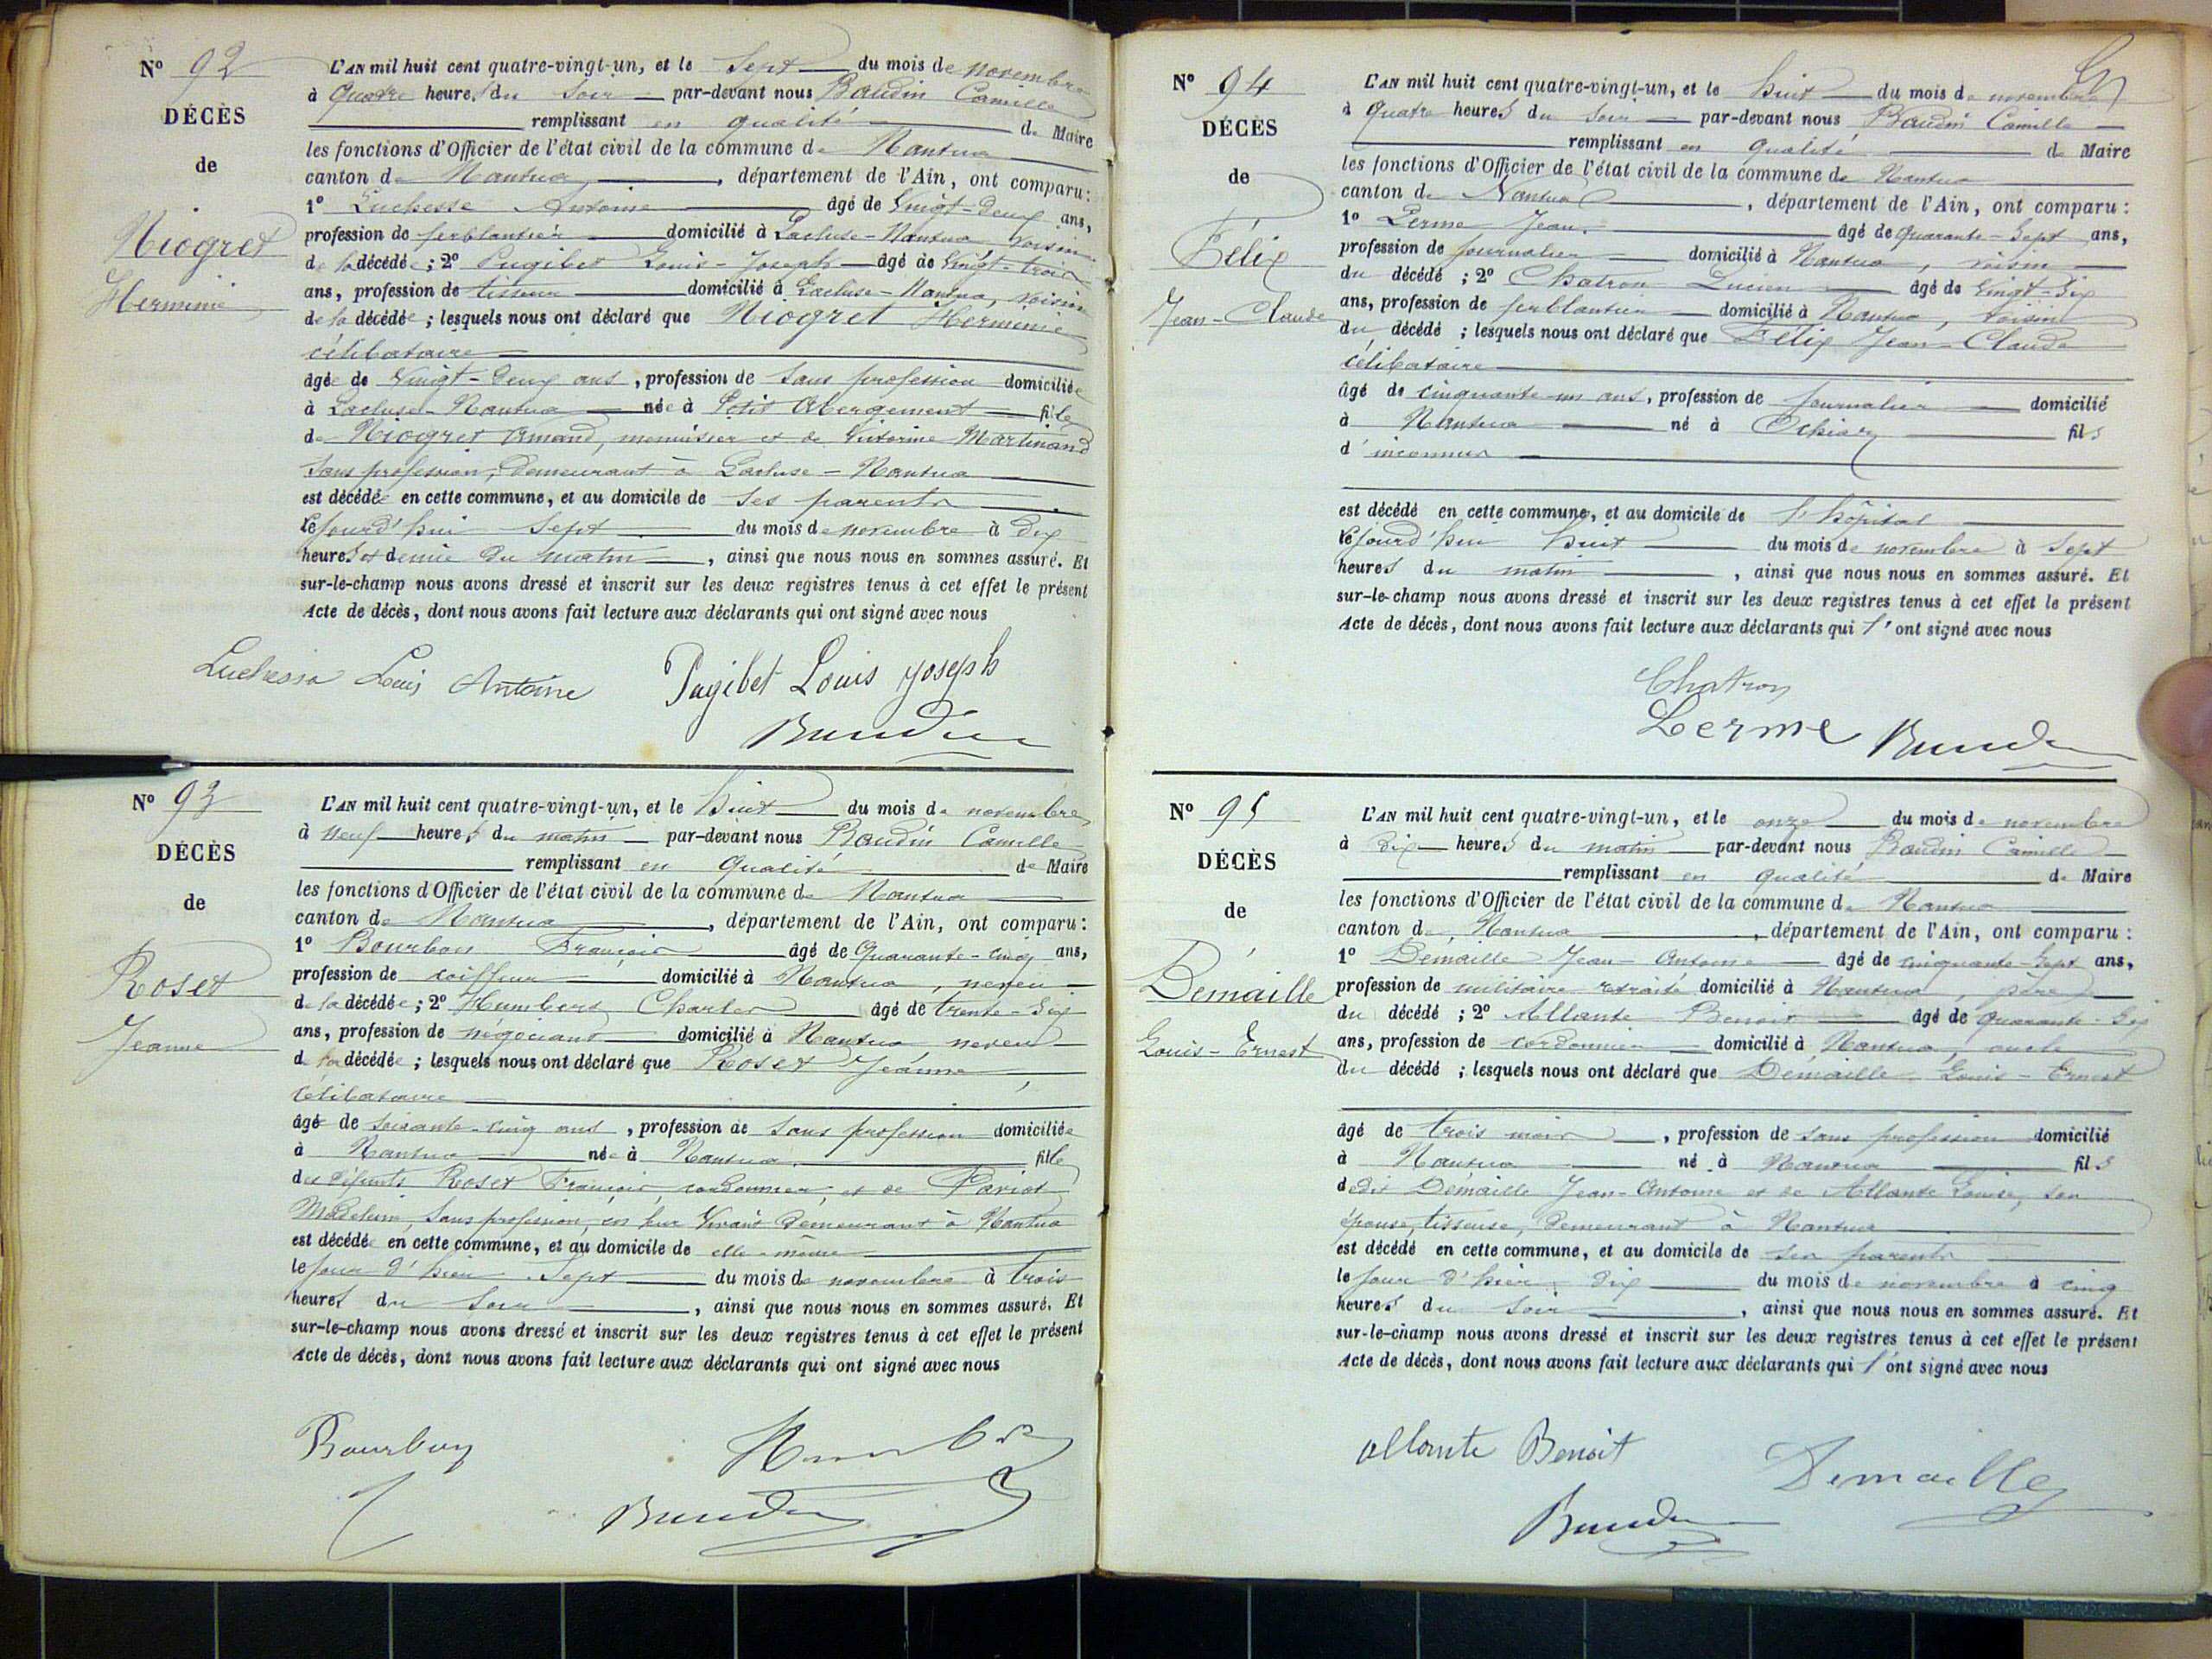 N° 92
DÉCÈS
de
Niogret
Herminie
L'AN mil huit cent quatre-vingt-un, et le Sept du mois de novembre
à Quatre heures du soir par-devant nous Baudin Camille
remplissant en qualité de Maire
les fonctions d'Officier de l'état civil de la commune de Nantua
canton de Nantua, département de l'Ain, ont comparu :
1° Luchesse Antoine âgé de Vingt-deux ans,
profession de ferblantier domicilié à Lacluse-Nantua voisin
de la décédée ; 2° Pugibet Louis-Joseph âgé de Vingt-trois
ans, profession de tisseur domicilié à Lacluse-Nantua, voisin
de la décédée ; lesquels nous ont déclaré que Niogret Herminie
célibataire
âgée de Vingt-deux ans, profession de sans profession domiciliée
à Lacluse-Nantua née à Petit Abergement fille
de Niogret Amand, menuisier et de Victorine Martinand
sans profession, demeurant à Lacluse-Nantua
est décédée en cette commune, et au domicile de ses parents
lejourd'hui Sept du mois de novembre à dix
heures et demie du matin, ainsi que nous nous en sommes assuré. Et
sur-le-champ nous avons dressé et inscrit sur les deux registres tenus à cet effet le présent
Acte de décès, dont nous avons fait lecture aux déclarants qui ont signé avec nous
Louis Antoine Pugibet Louis Joseph
Baudin
N° 93
DÉCÈS
de
Roset
Jeanne
L'AN mil huit cent quatre-vingt-un, et le huit du mois de novembre
à neuf heures du matin par-devant nous Baudin Camille
remplissant en qualité de Maire
les fonctions d'Officier de l'état civil de la commune de Nantua
canton de Nantua, département de l'Ain, ont comparu :
1° Bourbon François âgé de Quarante-cinq ans,
profession de coiffeur domicilié à Nantua, neveu
de la décédée ; 2° Humbert Charles âgé de trente-six
ans, profession de négociant domicilié à Nantua neveu
de la décédée ; lesquels nous ont déclaré que Roset Jeanne
célibataire
âgé de soixante-cinq ans, profession de sans profession domiciliée
à Nantua née à Nantua fille
des défunts Roset François, cordonnier, et de Pariot
Madeleine, sans profession, en leur vivant demeurant à Nantua
est décédé en cette commune, et au domicile de elle-même
le jour d'hier Sept du mois de novembre à trois
heures du soir, ainsi que nous nous en sommes assuré. Et
sur-le-champ nous avons dressé et inscrit sur les deux registres tenus à cet effet le présent
Acte de décès, dont nous avons fait lecture aux déclarants qui ont signé avec nous
Bourbon Humbert
Baudin
N° 94
DÉCÈS
de
Félix
Jean-Claude
L'AN mil huit cent quatre-vingt-un, et le huit du mois de novembre
à Quatre heures du soir par-devant nous Baudin Camille
remplissant en qualité de Maire
les fonctions d'Officier de l'état civil de la commune de Nantua
canton de Nantua, département de l'Ain, ont comparu :
1° Lerme Jean âgé de quarante-sept ans,
profession de journalier domicilié à Nantua, voisin
du décédé ; 2° Chatron Lucien âgé de Vingt-six
ans, profession de ferblantier domicilié à Nantua, voisin
du décédé ; lesquels nous ont déclaré que Félix Jean-Claude
célibataire
âgé de cinquante-un ans, profession de journalier domicilié
à Nantua né à Ochiaz fils
d'inconnus
est décédé en cette commune, et au domicile de l'hôpital
lejourd'hui huit du mois de novembre à sept
heures du matin, ainsi que nous nous en sommes assuré. Et
sur-le-champ nous avons dressé et inscrit sur les deux registres tenus à cet effet le présent
Acte de décès, dont nous avons fait lecture aux déclarants qui l'ont signé avec nous
Chatron
Lerme Baudin
N° 95
DÉCÈS
de
Demaille
Louis-Ernest
L'AN mil huit cent quatre-vingt-un, et le onze du mois de novembre
à dix heures du matin par-devant nous Baudin Camille
remplissant en qualité de Maire
les fonctions d'Officier de l'état civil de la commune de Nantua
canton de Nantua, département de l'Ain, ont comparu :
1° Demaille Jean-Antoine âgé de cinquante-sept ans,
profession de militaire retraité domicilié à Nantua, père
du décédé ; 2° Allante Benoit âgé de quarante-six
ans, profession de cordonnier domicilié à Nantua, oncle
du décédé ; lesquels nous ont déclaré que Demaille Louis-Ernest
âgé de trois mois, profession de sans profession domicilié
à Nantua né à Nantua fils
dedit Demaille Jean-Antoine et de Allante Louise, son
épouse, tisseuse, demeurant à Nantua
est décédé en cette commune, et au domicile de ses parents
le jour d'hier dix du mois de novembre à cinq
heures du soir, ainsi que nous nous en sommes assuré. Et
sur-le-champ nous avons dressé et inscrit sur les deux registres tenus à cet effet le présent
Acte de décès, dont nous avons fait lecture aux déclarants qui l'ont signé avec nous
allante Benoit Demaille
Baudin